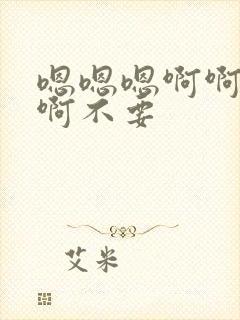 嗯嗯嗯啊啊
啊不要
艾米